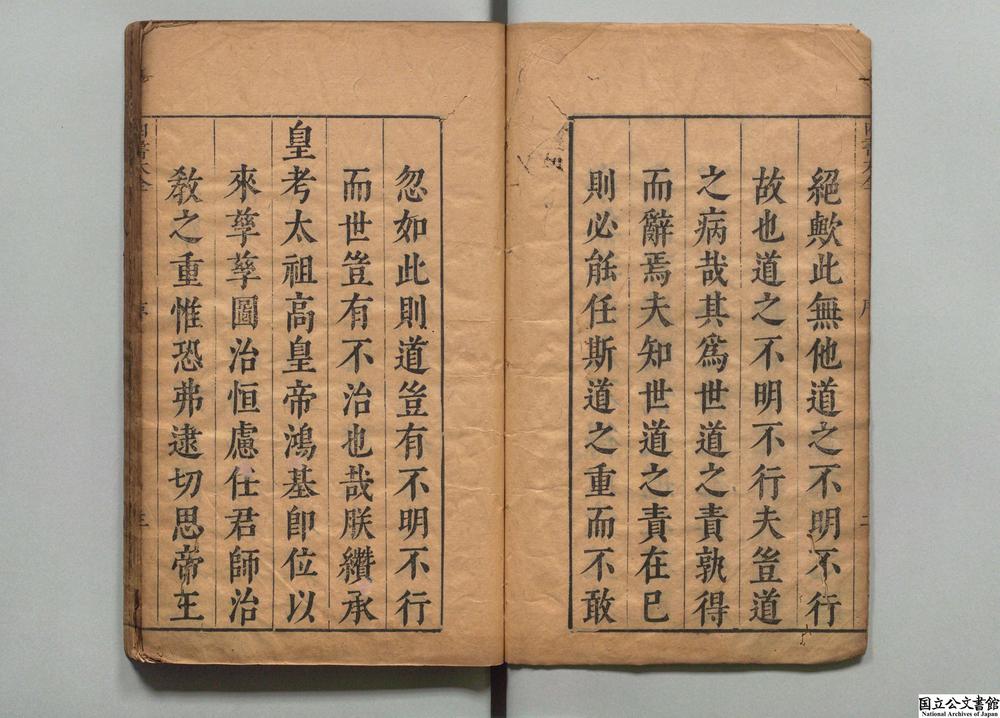 絕歟此無他道之不明不行
故也道之不明不行夫豈道
之病哉其爲世道之責孰得
而辭焉夫知世道之責在已
則必能任斯道之重而不敢
忽如此則道豈有不明不行
而世豈有不治也哉朕纘承
皇考太祖高皇帝鴻基即位以
來孳孳圖治恒慮任君師治
敎之重惟恐弗逮切思帝王
国立公文書館
National Archives of Japan